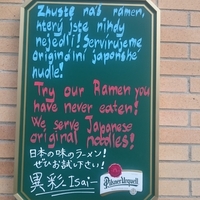 Zkuste náš rámen,
který jste nikdy
nejedli! Servírujeme
originální japonské
nudle!
Try our Ramen you
have never eaten!
We serve Japanese
original noodles!
日本の味のラーメン!
ぜひお試し下さい!
異彩 -Isai-
Pilsner Urquell